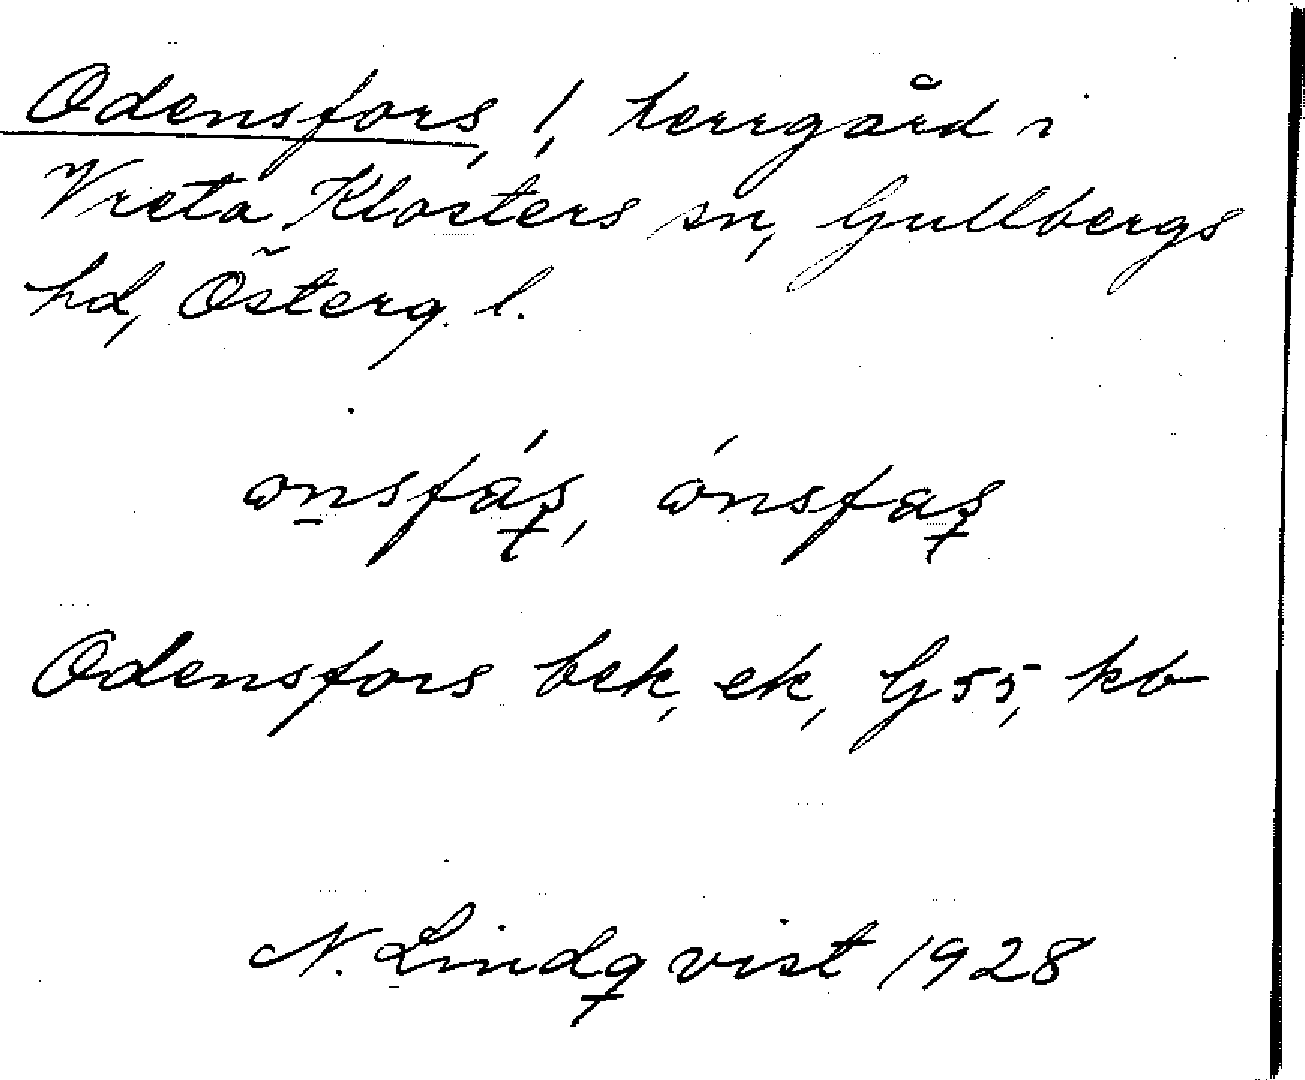 Odensfors, !, herrgård i
Vreta Klosters sn, Gullbergs
hd, Österg. l.
Odensfors bek, ek, G55, kb
N. Lindqvist 1928